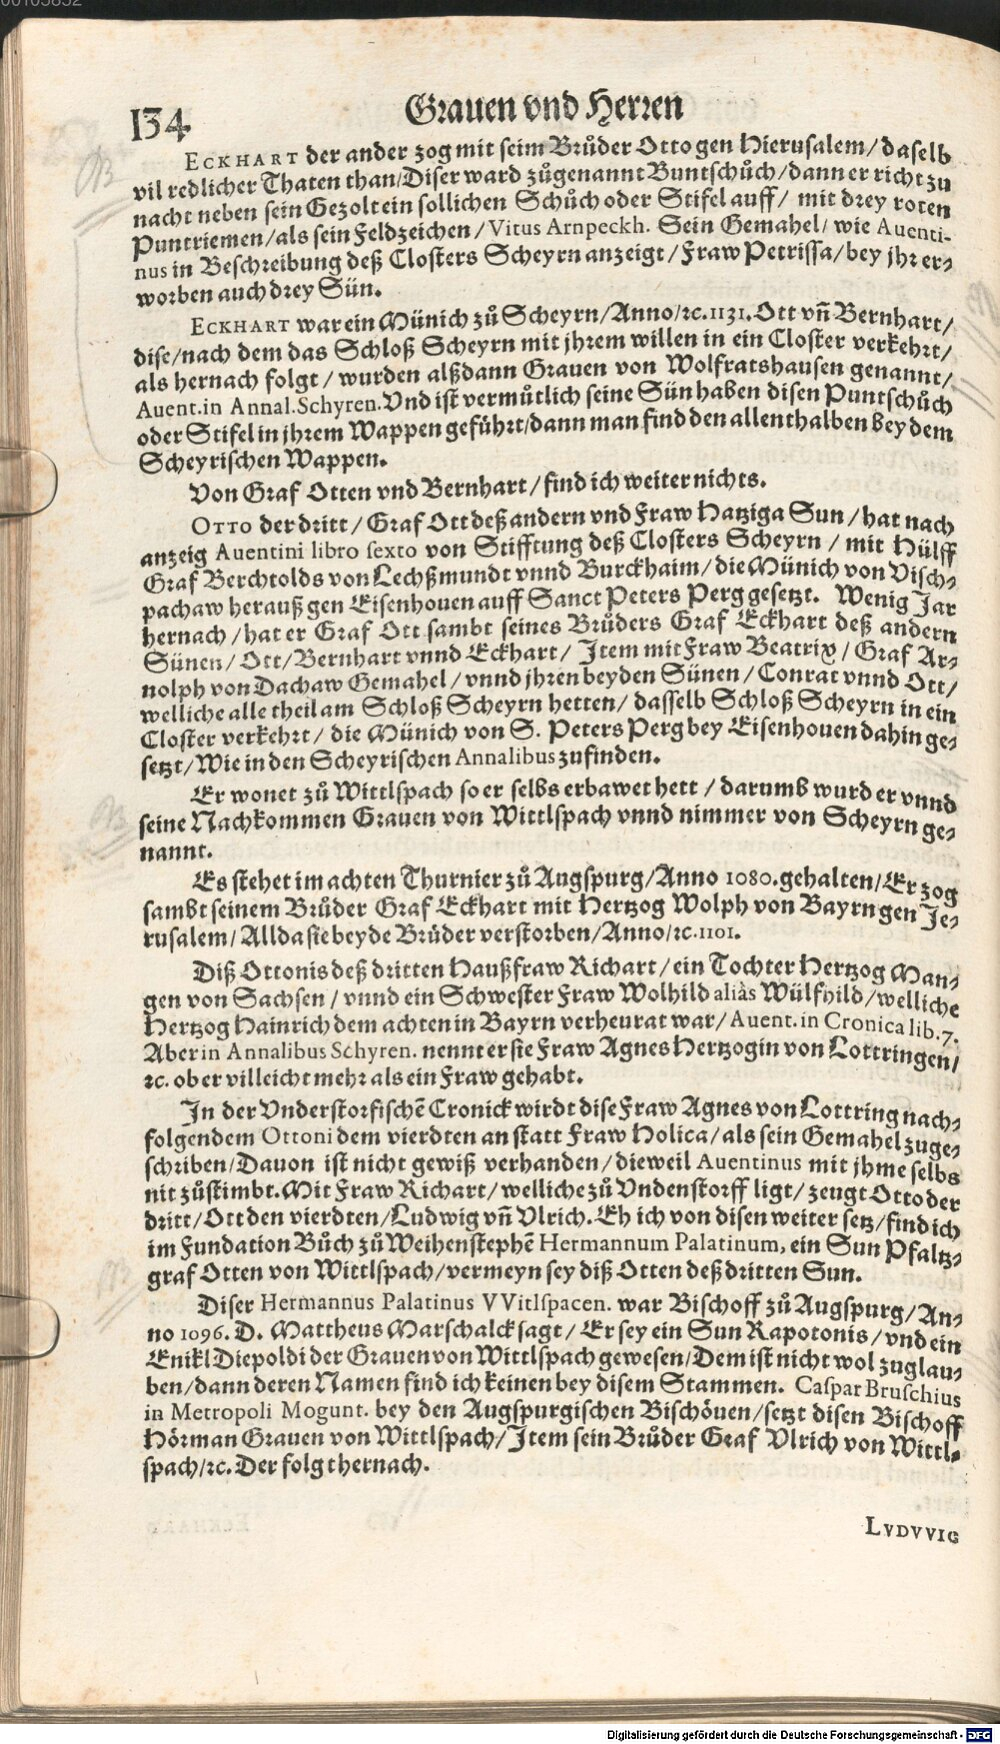 134
Grauen vnd Herren
ECKHART der ander zog mit seim Brůder Otto gen Hierusalem/ daselb
vil redlicher Thaten than/ Diser ward zůgenannt Buntschůch/ dann er richt zu
nacht neben sein Gezolt ein sollichen Schůch oder Stifel auff/ mit drey roten
Puntriemen/ als sein Feldzeichen/ Vitus Arnpeckh. Sein Gemahel/ wie Auenti-
nus in Beschreibung deß Closters Scheyrn anzeigt/ Fraw Petrissa/ bey jhr er-
worben auch drey Sün.
ECKHART war ein Münich zů Scheyrn/ Anno/ꝛc. 1131. Ott vn̄ Bernhart/
dise/ nach dem das Schloß Scheyrn mit jhrem willen in ein Closter verkehrt/
als hernach folgt/ wurden alßdann Grauen von Wolfratshausen genannt/
Auent. in Annal. Schyren. Vnd ist vermůtlich seine Sün haben disen Puntschůch
oder Stifel in jhrem Wappen geführt/ dann man find den allenthalben bey dem
Scheyrischen Wappen.
Von Graf Otten vnd Bernhart/ find ich weiter nichts.
OTTO der dritt/ Graf Ott deß andern vnd Fraw Hatziga Sun/ hat nach
anzeig Auentini libro sexto von Stifftung deß Closters Scheyrn/ mit Hülff
Graf Berchtolds von Lechßmundt vnnd Burckhaim/ die Münich von Visch-
pachaw herauß gen Eisenhouen auff Sanct Peters Perg gesetzt. Wenig Jar
hernach/ hat er Graf Ott sambt seines Brůders Graf Eckhart deß andern
Sünen/ Ott/ Bernhart vnnd Eckhart/ Item mit Fraw Beatrix/ Graf Ar-
nolph von Dachaw Gemahel/ vnnd jhren beyden Sünen/ Conrat vnnd Ott/
welliche alle theil am Schloß Scheyrn hetten/ dasselb Schloß Scheyrn in ein
Closter verkehrt/ die Münich von S. Peters Perg bey Eisenhouen dahin ge-
setzt/ Wie in den Scheyrischen Annalibus zufinden.
Er wonet zů Wittlspach so er selbs erbawet hett/ darumb wurd er vnnd
seine Nachkommen Grauen von Wittlspach vnnd nimmer von Scheyrn ge-
nannt.
Es stehet im achten Thurnier zů Augspurg/ Anno 1080. gehalten/ Er zog
sambt seinem Brůder Graf Eckhart mit Hertzog Wolph von Bayrn gen Je-
rusalem/ Allda sie beyde Brůder verstorben/ Anno/ꝛc. 1101.
Diß Ottonis deß dritten Haußfraw Richart/ ein Tochter Hertzog Man-
gen von Sachsen/ vnnd ein Schwester Fraw Wolhild aliàs Wülfhild/ welliche
Hertzog Hainrich dem achten in Bayrn verheurat war/ Auent. in Cronica lib. 7.
Aber in Annalibus Schyren. nennt er sie Fraw Agnes Hertzogin von Lottringen/
ꝛc. ob er villeicht mehr als ein Fraw gehabt.
In der Vnderstorfischē Cronick wirdt dise Fraw Agnes von Lottring nach-
folgendem Ottoni dem vierdten an statt Fraw Holica/ als sein Gemahel zuge-
schriben/ Dauon ist nicht gewiß verhanden/ dieweil Auentinus mit jhme selbs
nit zůstimbt. Mit Fraw Richart/ welliche zů Vndenstorff ligt/ zeugt Otto der
dritt/ Ott den vierdten/ Ludwig vn̄ Vlrich. Eh ich von disen weiter setz/ find ich
im Fundation Bůch zů Weihenstephē Hermannum Palatinum, ein Sun Pfaltz-
graf Otten von Wittlspach/ vermeyn sey diß Otten deß dritten Sun.
Diser Hermannus Palatinus VVitlspacen. war Bischoff zů Augspurg/ An-
no 1096. D. Mattheus Marschalck sagt/ Er sey ein Sun Rapotonis/ vnd ein
Enikl Diepoldi der Grauen von Wittlspach gewesen/ Dem ist nicht wol zuglau-
ben/ dann deren Namen find ich keinen bey disem Stammen. Caspar Bruschius
in Metropoli Mogunt. bey den Augspurgischen Bischöuen/ setzt disen Bischoff
Hörman Grauen von Wittlspach/ Item sein Brůder Graf Vlrich von Wittl-
spach/ꝛc. Der folgt hernach.
LVDVVIG
Digitalisierung gefördert durch die Deutsche Forschungsgemeinschaft - DFG